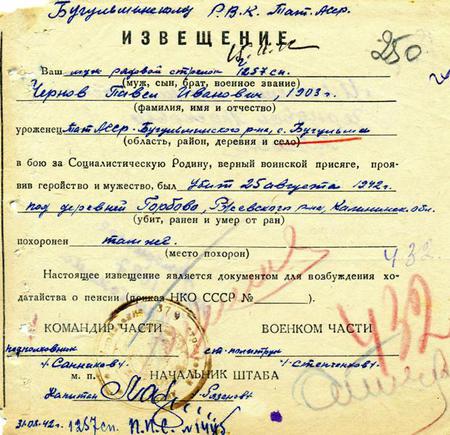 Бугульминскому Р.В.К. Тат. Асср.
ИЗВЕЩЕНИЕ
250
Ваш муж рядовой стрелок 1257 сп.
(муж, сын, брат, военное звание)
Чернов Павел Иванович, 1903 г.
(фамилия, имя и отчество)
уроженец Тат АССР. Бугульминского р-на, с. Бугульма
(область, район, деревня и село)
в бою за Социалистическую Родину, верный воинской присяге, проя-
вив геройство и мужество, был убит 25 августа 1942 г.
под деревней Горбово, Ржевского р-на, Калининск. обл.
(убит, ранен и умер от ран)
похоронен там же.
(место похорон)
432
Настоящее извещение является документом для возбуждения хо-
датайства о пенсии (приказ НКО СССР №
).
432
КОМАНДИР ЧАСТИ ВОЕНКОМ ЧАСТИ
подполковник ст. политрук
/Санников/ /Степченков/
м. п. НАЧАЛЬНИК ШТАБА
Капитан
31.08.42 г. 1257 сп. П.П.С. № 1445